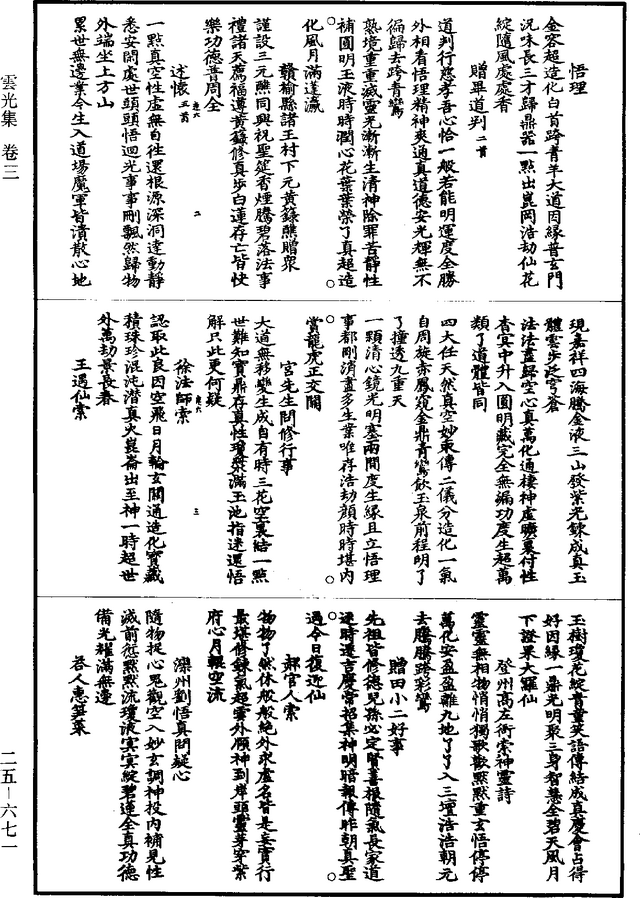 雲光集 卷三
二五—六七一
悟理
金容超造化白首跨青羊大道因緣普玄門
況味長三才歸鼎器一點出崑岡浩劫仙花
綻隨風處處香
贈畢道判二首
道判行慈孝吾心恰一般若能明運度全勝
外相看悟理精神爽通真道德安光輝無不
徧歸去跨青鸞
熟境重重滅靈光漸漸生清神除罪苦靜性
補圓明玉液時時潤心花葉葉榮了真超造
化風月滿蓬瀛
贛榆縣諸王村下元黃籙醮贈眾
謹設三元醮同興祝聖筵香煙騰碧落法事
禮諸天薦福遵黃籙修真步白蓮存亡皆快
樂功德普周全
述懷五首
一點真空性虛無自往還根源深洞達動靜
悉安閑處世頭頭悟迴光事事刪飄然歸物
外端坐上方山
累世無邊業今生入道場魔軍皆潰散心地
現嘉祥四海騰金液三山發紫光鍊成真玉
體雲步泛穹蒼
法法盡歸空心真萬化通棲神虛曠裏付性
杳冥中升入圓明藏完全無漏功度生超萬
類了道體皆同
四大任天然真空妙東傳二儀分造化一氣
自周旋赤鳳窺金鼎青鸞飲玉泉前程明了
了撞透九重天
一顆清心鏡光明塞兩間度生緣且立悟理
事都刪清晝多生業唯存浩劫顏時時堪內
賞龍虎正交關
宮先生問修行事
大道無移變生成自有時三花空裏結一點
世難知寶鼎存真性瓊漿滿玉池指迷還悟
解只此更何疑
徐法師索
認取此良因空飛日月輪玄關通造化寶藏
積珠珍混沌潛真火崑崙出至神一時超世
外萬劫景長春
王遇仙索
玉樹瓊花綻青童笑語傳結成真慶會占得
好因緣一鼎光明聚三身智慧全碧天風月
下證果大羅仙
登州高左衒索神靈詩
靈靈無相物悄悄獨歌歡默默重玄悟停停
萬化安盈盈離九地了了入三壇浩浩朝元
去騰騰跨彩鸞
贈田小二好事
先祖皆修德兒孫必定賢善根隨氣長家道
逐時遷吉慶常招集神明暗報傳昨朝真聖
過今日復迎仙
郝官人索
物物了然休般般絕外求虛名皆是妄實行
最堪修鍊氣超雲外順神到岸頭靈芽穿紫
府心月輥空流
灤州劉悟真問疑心
隨物捉心鬼觀空入妙玄調神投內補見性
滅前愆默默流瓊液冥冥綻碧蓮全真功德
備光耀滿無邊
吞人惠箕菜